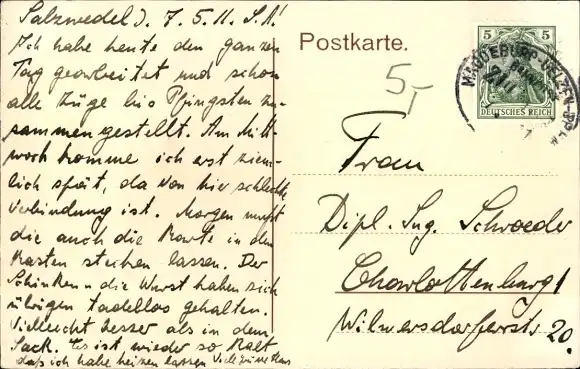 Salzwedel D. 7.5.11. S.A!
Ich habe heute den ganzen
Tag gearbeitet und schon
alle Züge bis Pfingsten zu-
sammengestellt. Am Mitt-
woch komme ich erst ziem-
lich spät, da von hier schlechte
Verbindung ist. Morgen mußt
die auch die Karte in den
Kasten stecken lassen. Der
Schinken u die Wurst haben sich
übrigen tadellos gehalten.
Vielleicht besser als in dem
Sack. Es ist wieder so kalt
daß ich habe heizen lassen Viele Grüße
Postkarte.
5
5 5
DEUTSCHES REICH
MAGDEBURG-UELZEN
Frau
Dipl. Ing. Schroeder
Charlottenburg 1
Wilmersdorferstr. 20.